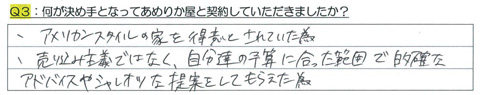 Q3：何が決め手となってあめりか屋と契約していただきましたか？
、アメリカンスタイルの家を得意とされていた為
、売り込み主義ではなく、自分達の予算に合った範囲で的確な
アドバイスやシャレオツな提案をしてもらえた為